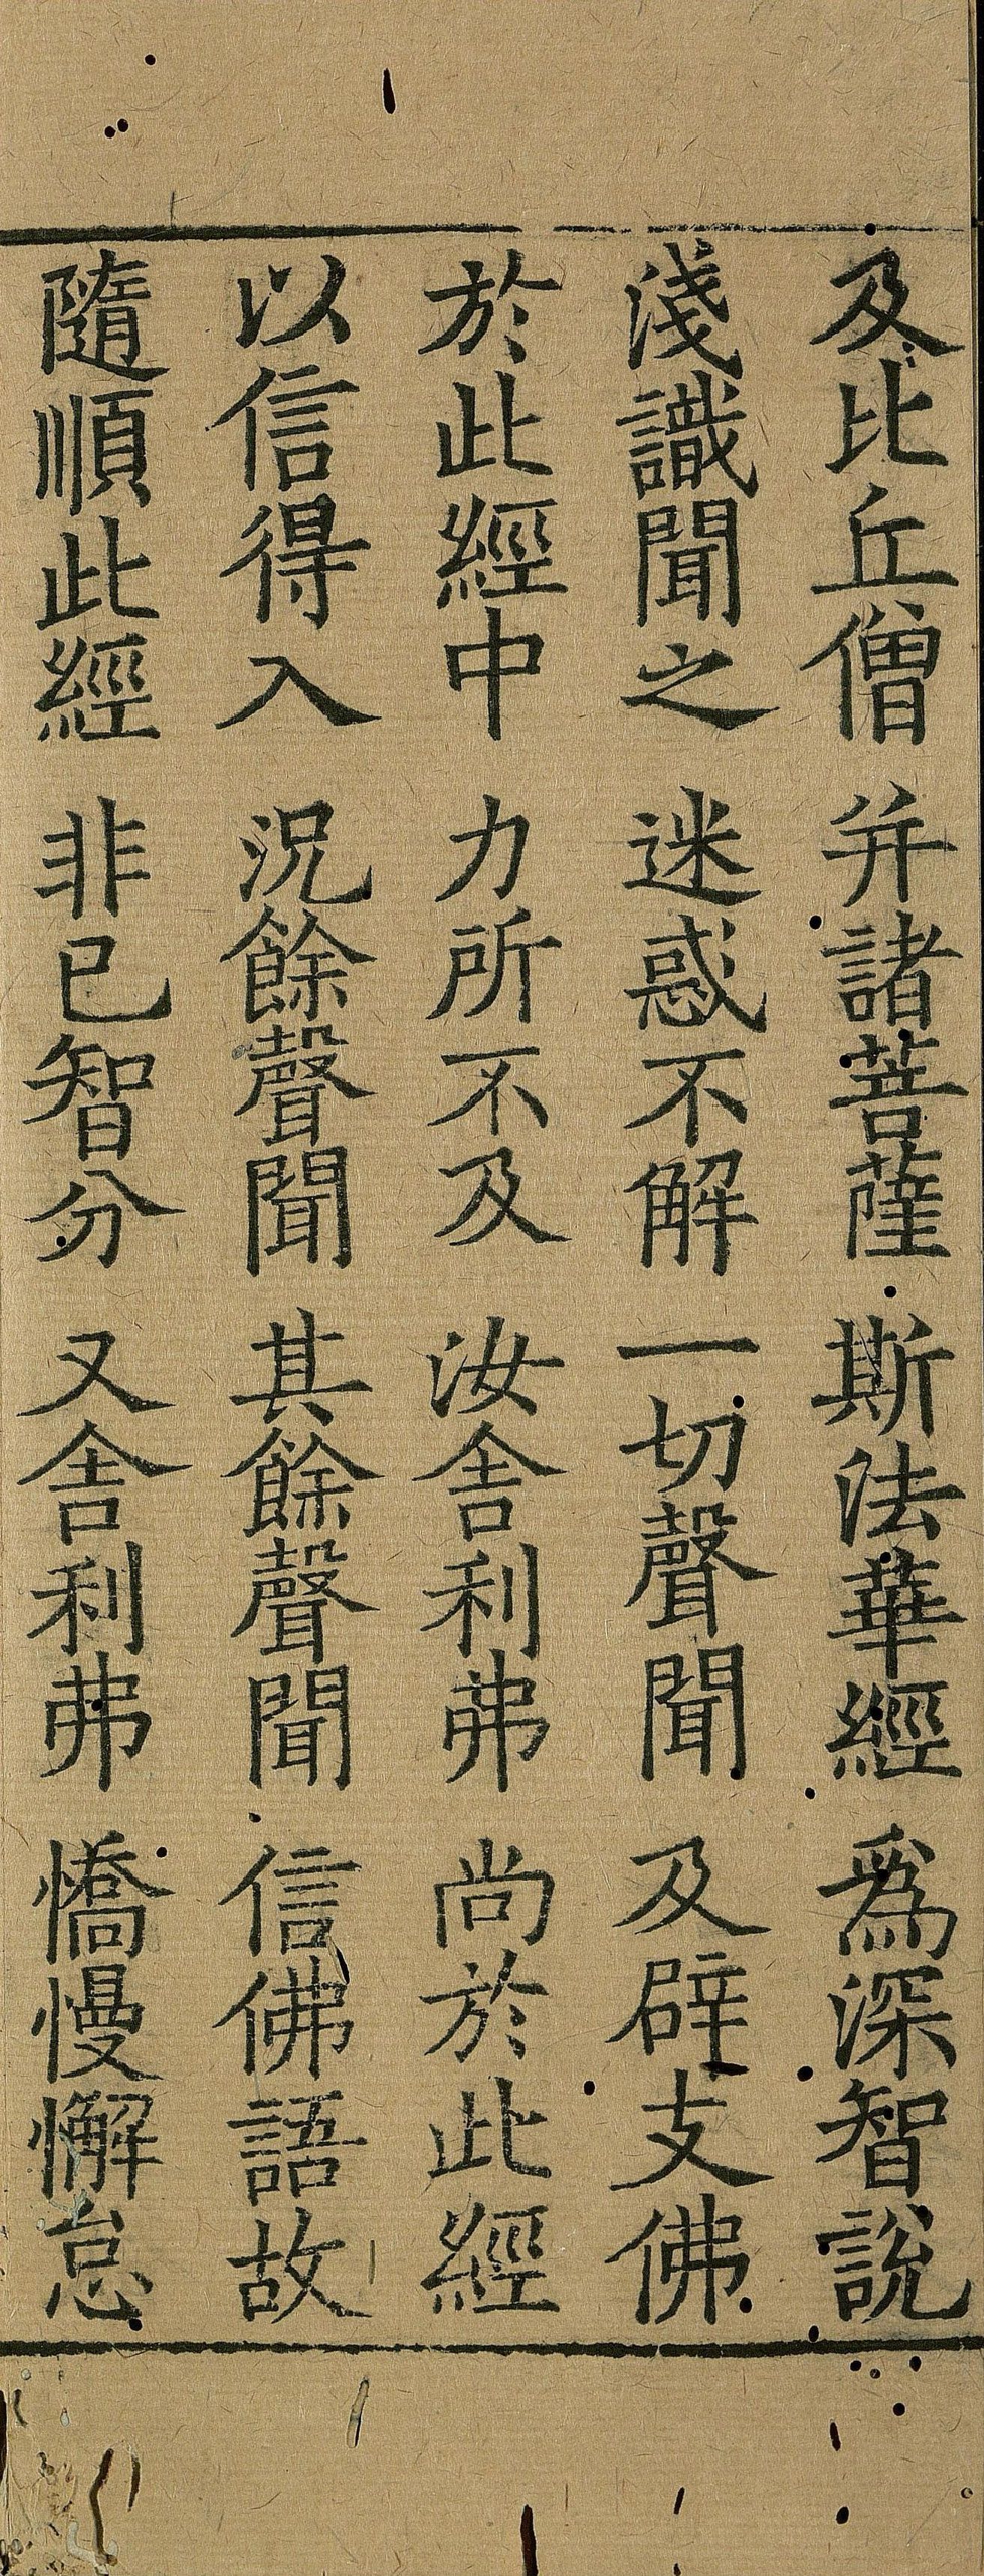 及比丘僧　并諸菩薩　斯法華經　爲深智說
淺識聞之　迷惑不解　一切聲聞　及辟支佛
於此經中　力所不及　汝舍利弗　尚於此經
以信得入　況餘聲聞　其餘聲聞　信佛語故
隨順此經　非已智分　又舍利弗　憍慢懈怠